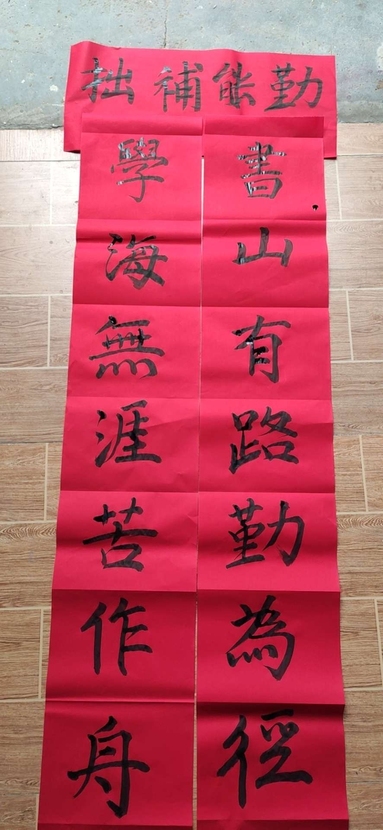 勤能補拙
書山有路勤為徑
學海無涯苦作舟